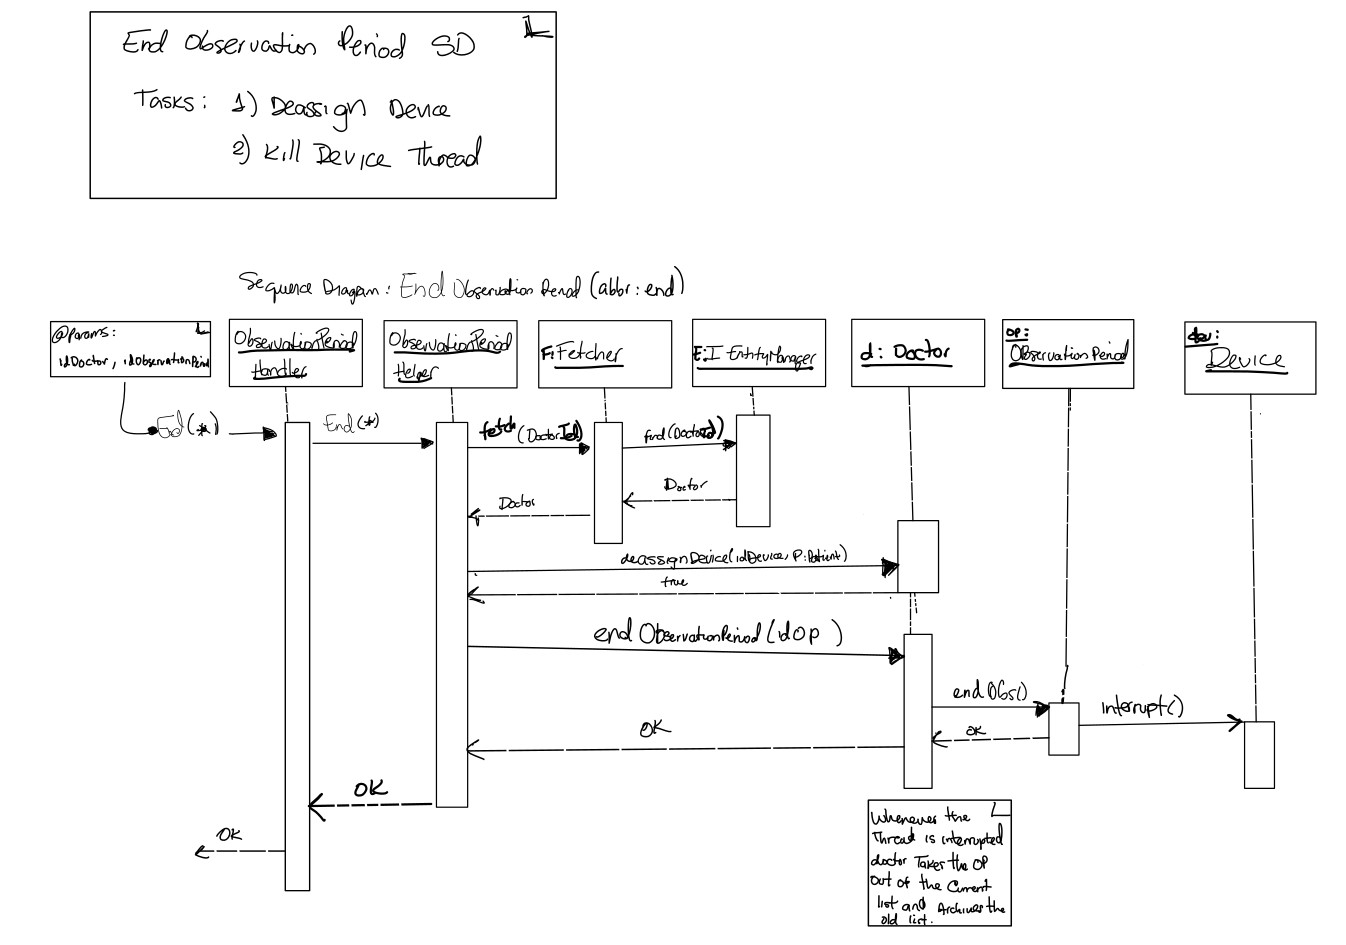 End Observation Period SD
Tasks: 1) Deassign Device
2) Kill Device Thread
Sequence Diagram: End Observation Period (abbr: end)
@Params:
idDoctor, idObservationPeriod
ObservationPeriod
Handler
ObservationPeriod
Helper
F:Fetcher
E:IEntityManager
d: Doctor
op:
ObservationPeriod
dev:
Device
End(*)
End(*)
fetch(DoctorId)
find(DoctorId)
Doctor
Doctor
deassignDevice(idDevice, P:Patient)
true
endObservationPeriod(idOp)
endObs()
interrupt()
OK
OK
OK
OK
Whenever the
Thread is interrupted
doctor Takes the OP
Out of the Current
list and Archives the
old list.